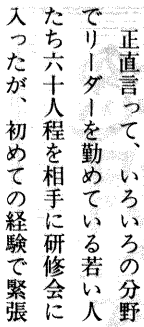 正直言って、いろいろの分野
でリーダーを勤めている若い人
たち六十人程を相手に研修会に
入ったが、初めての経験で緊張